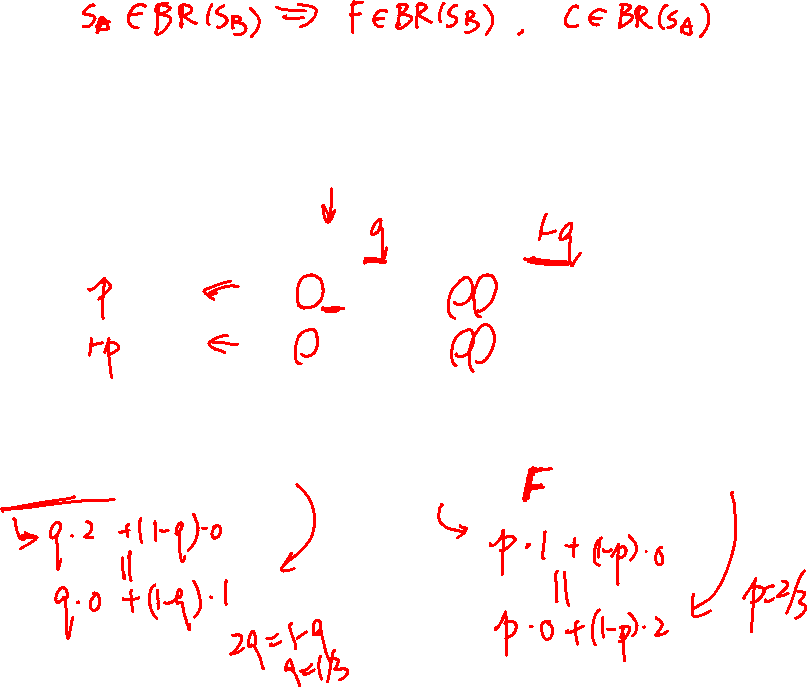 S_A ∈ BR(S_B) ⇒ F ∈ BR(S_B), C ∈ BR(S_A)
q 1-q
p
1-p
F
q·2 + (1-q)·0
||
q·0 + (1-q)·1
2q = 1-q
q = 1/3
p·1 + (1-p)·0
||
p·0 + (1-p)·2
p = 2/3